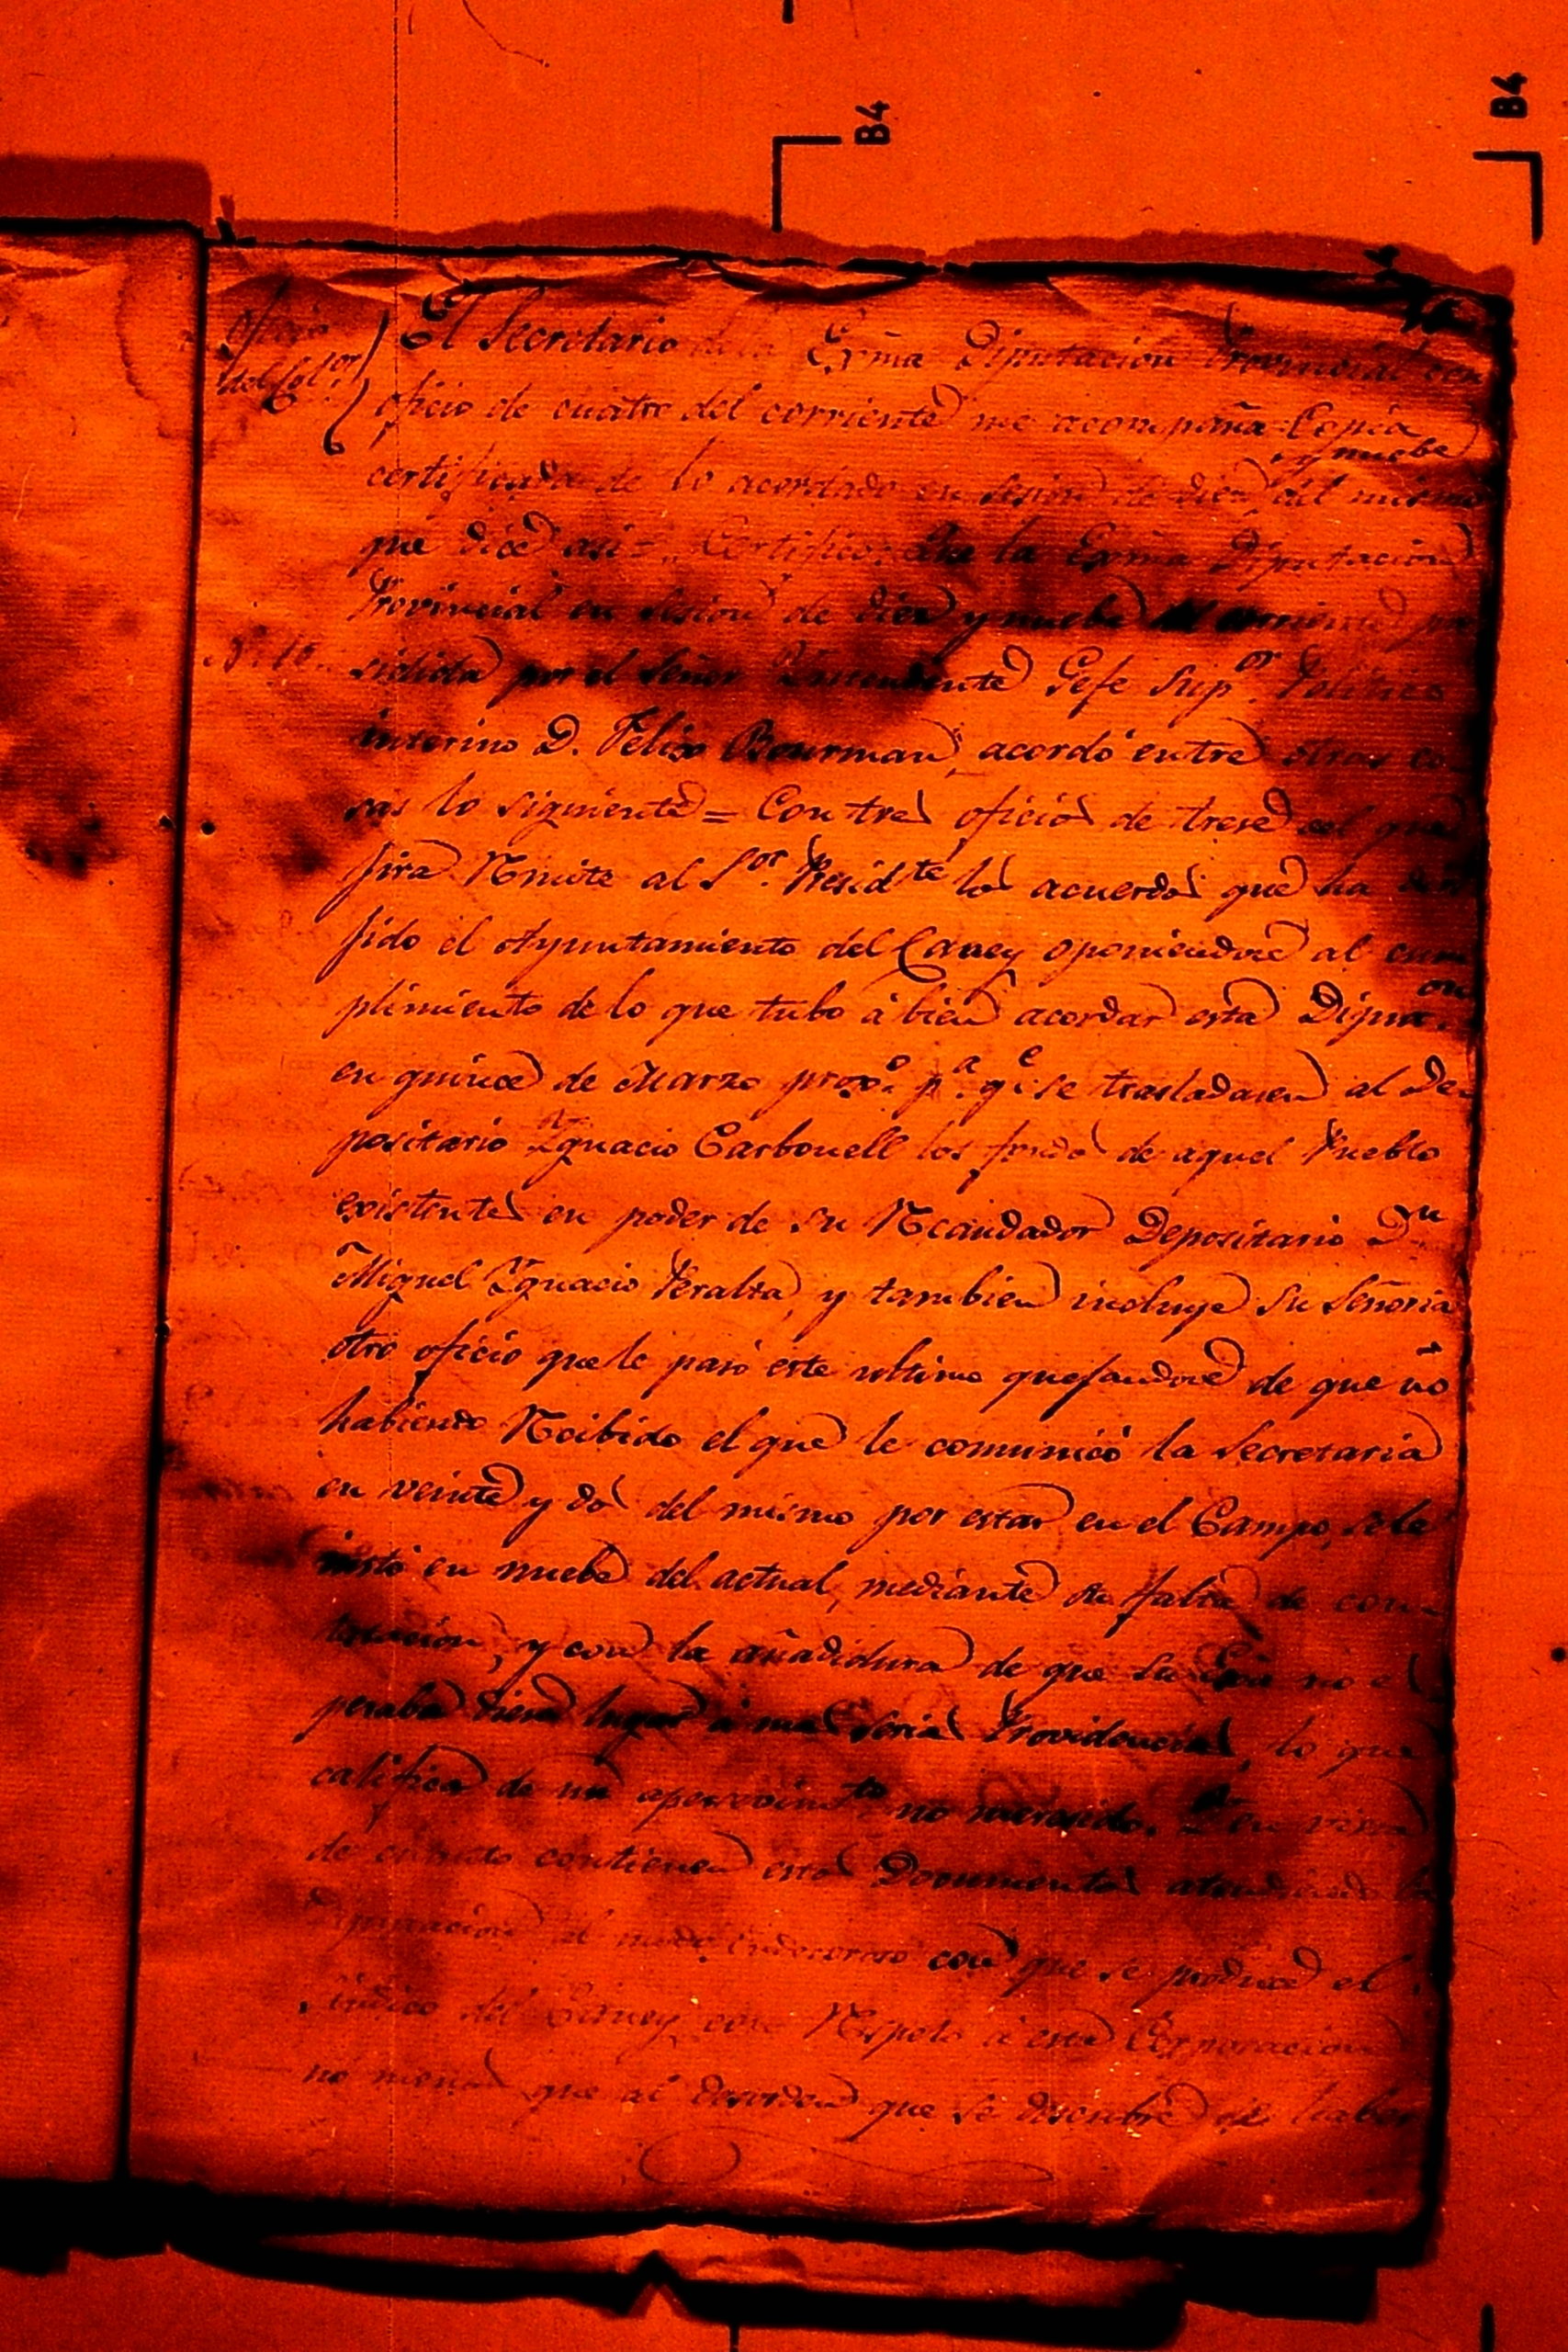 B4
B4
Oficio
del Sor.
El Secretario de la Exma Diputación Provincial con
oficio de cuatro del corriente me acompaña Copia
y nuebe
certificada de lo acordado en sesion de diez del mismo
que dice asi = Certifico: Que la Exma Diputación
Provincial en sesion de diez y nuebe del corriente pre
sidida por el Señor Yntendente Gefe Supor. Politico
interino D. Felix Bourman, acordó entre otras co-
sas lo siguiente = Con tres oficios de trese del que
jira Remite al Sor. Presidte los acuerdos que ha
el Ayuntamiento del Caney oponiendose al cum
plimiento de lo que tubo á bien acordar esta Dipuon.
en quince de Marzo proxo. pa. qe. se trasladasen al De-
positario Ygnacio Carbonell los fondos de aquel Pueblo
existentes en poder de su Recaudador Depositario Dn
Miguel Ygnacio Peralta, y tambien incluye su Señoria
otro oficio que le pasó este ultimo quejandose de que no
habiendo Recibido el que le comunicó la Secretaria
en veinte y dos del mismo por estar en el Campo, se le
insto en nuebe del actual, mediante su falta de con-
testacion, y con la añadidura de que Su Exa no es
peraba diera lugar á mas serias Providencias, lo que
califica de un apercevimto no merecido. Y en vista
de cuanto contienen estos Documentos atendiendo la
Diputacion al modo indecoroso con que se produce el
Sindico del Caney con Respeto á esta Corporacion
no menos que al desorden que se descubre de haber